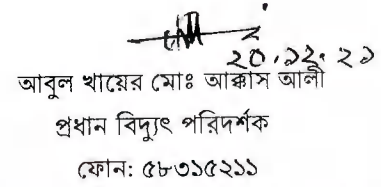 ২০.১২.২১
আবুল খায়ের মোঃ আক্কাস আলী
প্রধান বিদ্যুৎ পরিদর্শক
ফোন: ৫৮৩১৫২১১